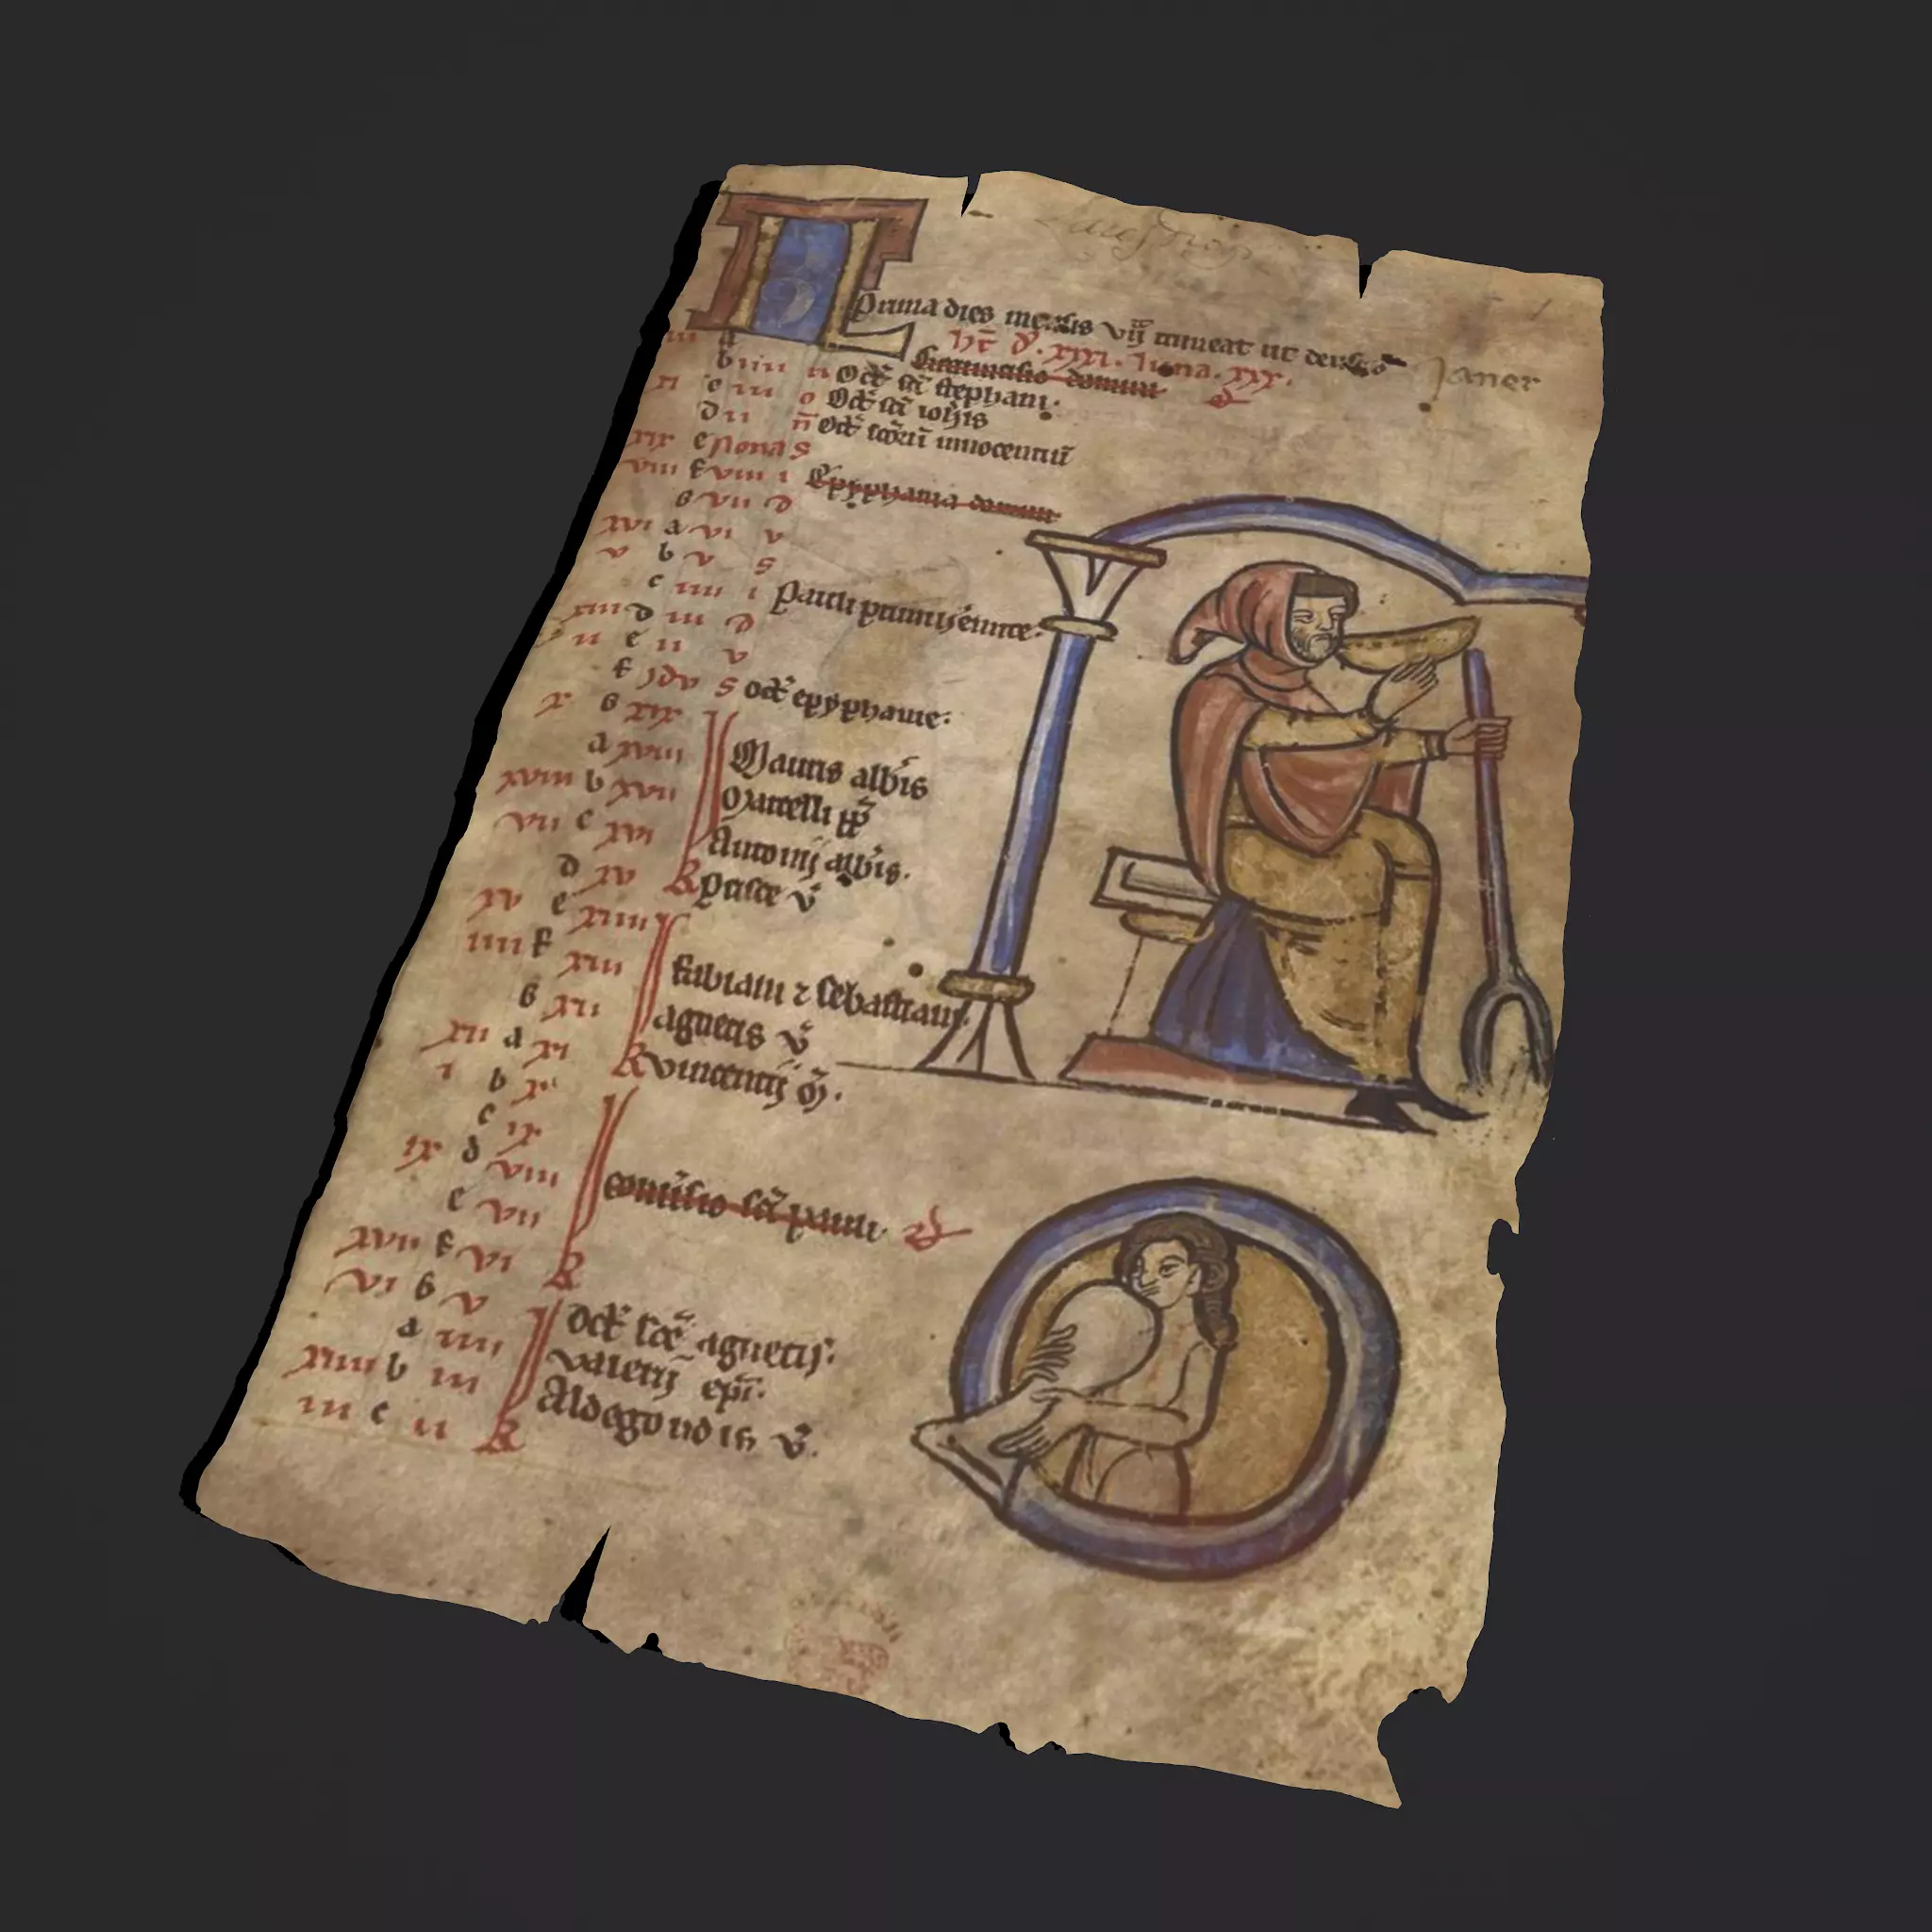 KL
Prima dies mensis vij timeat ut
Janer
hr̄ d̄. xxxi. luna. xxx.
iii a Circumcisio domini
b iiii n Oct̄ sc̄i stephani.
xi c iii o Oct̄ sc̄i ioh̄is
d ii n̄ Oct̄ sc̄orū innocentiū
xix e Nonas
viii f viii i Epyphania domini
g vii d
xvi a vi v
v b v s
c iiii i Pauli primi h̄emite.
xiii d iii d
ii e ii v
f Idv s oct̄ epyphanie.
x g xix
a xviii Mauris abb̄is
xviii b xvii Marcelli pp̄
vii c xvi Antonij abb̄is.
d xv Prisce v̄
xv e xiiii
iiii f xiii fabiani ⁊ sebastiani.
g xii agnetis v̄
xii a xi vincentij m̄.
i b x
c ix
ix d viii conūsio sc̄i pauli.
e vii
xvii f vi
vi g v oct̄ sc̄e agnetis.
a iiii valerij ep̄i.
xiiii b iii Aldegondis v̄.
iii c ii